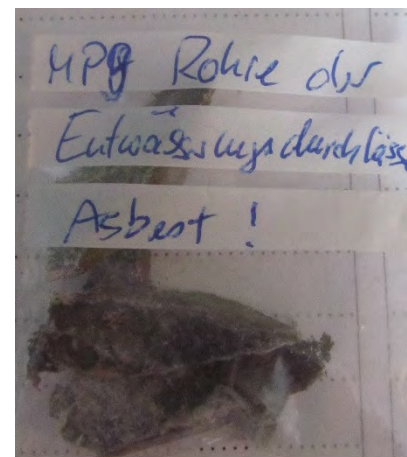 MP9 Rohre der
Entwässerungsdurchläss
Asbest !